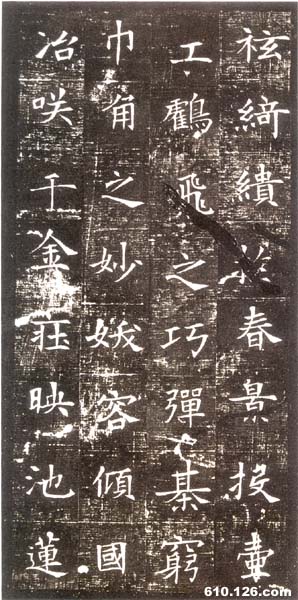 袨綺繢於春景投壷
工鶴飛之巧彈棊窮
巾角之妙娥容傾國
冶咲千金莊映池蓮
610.126.com